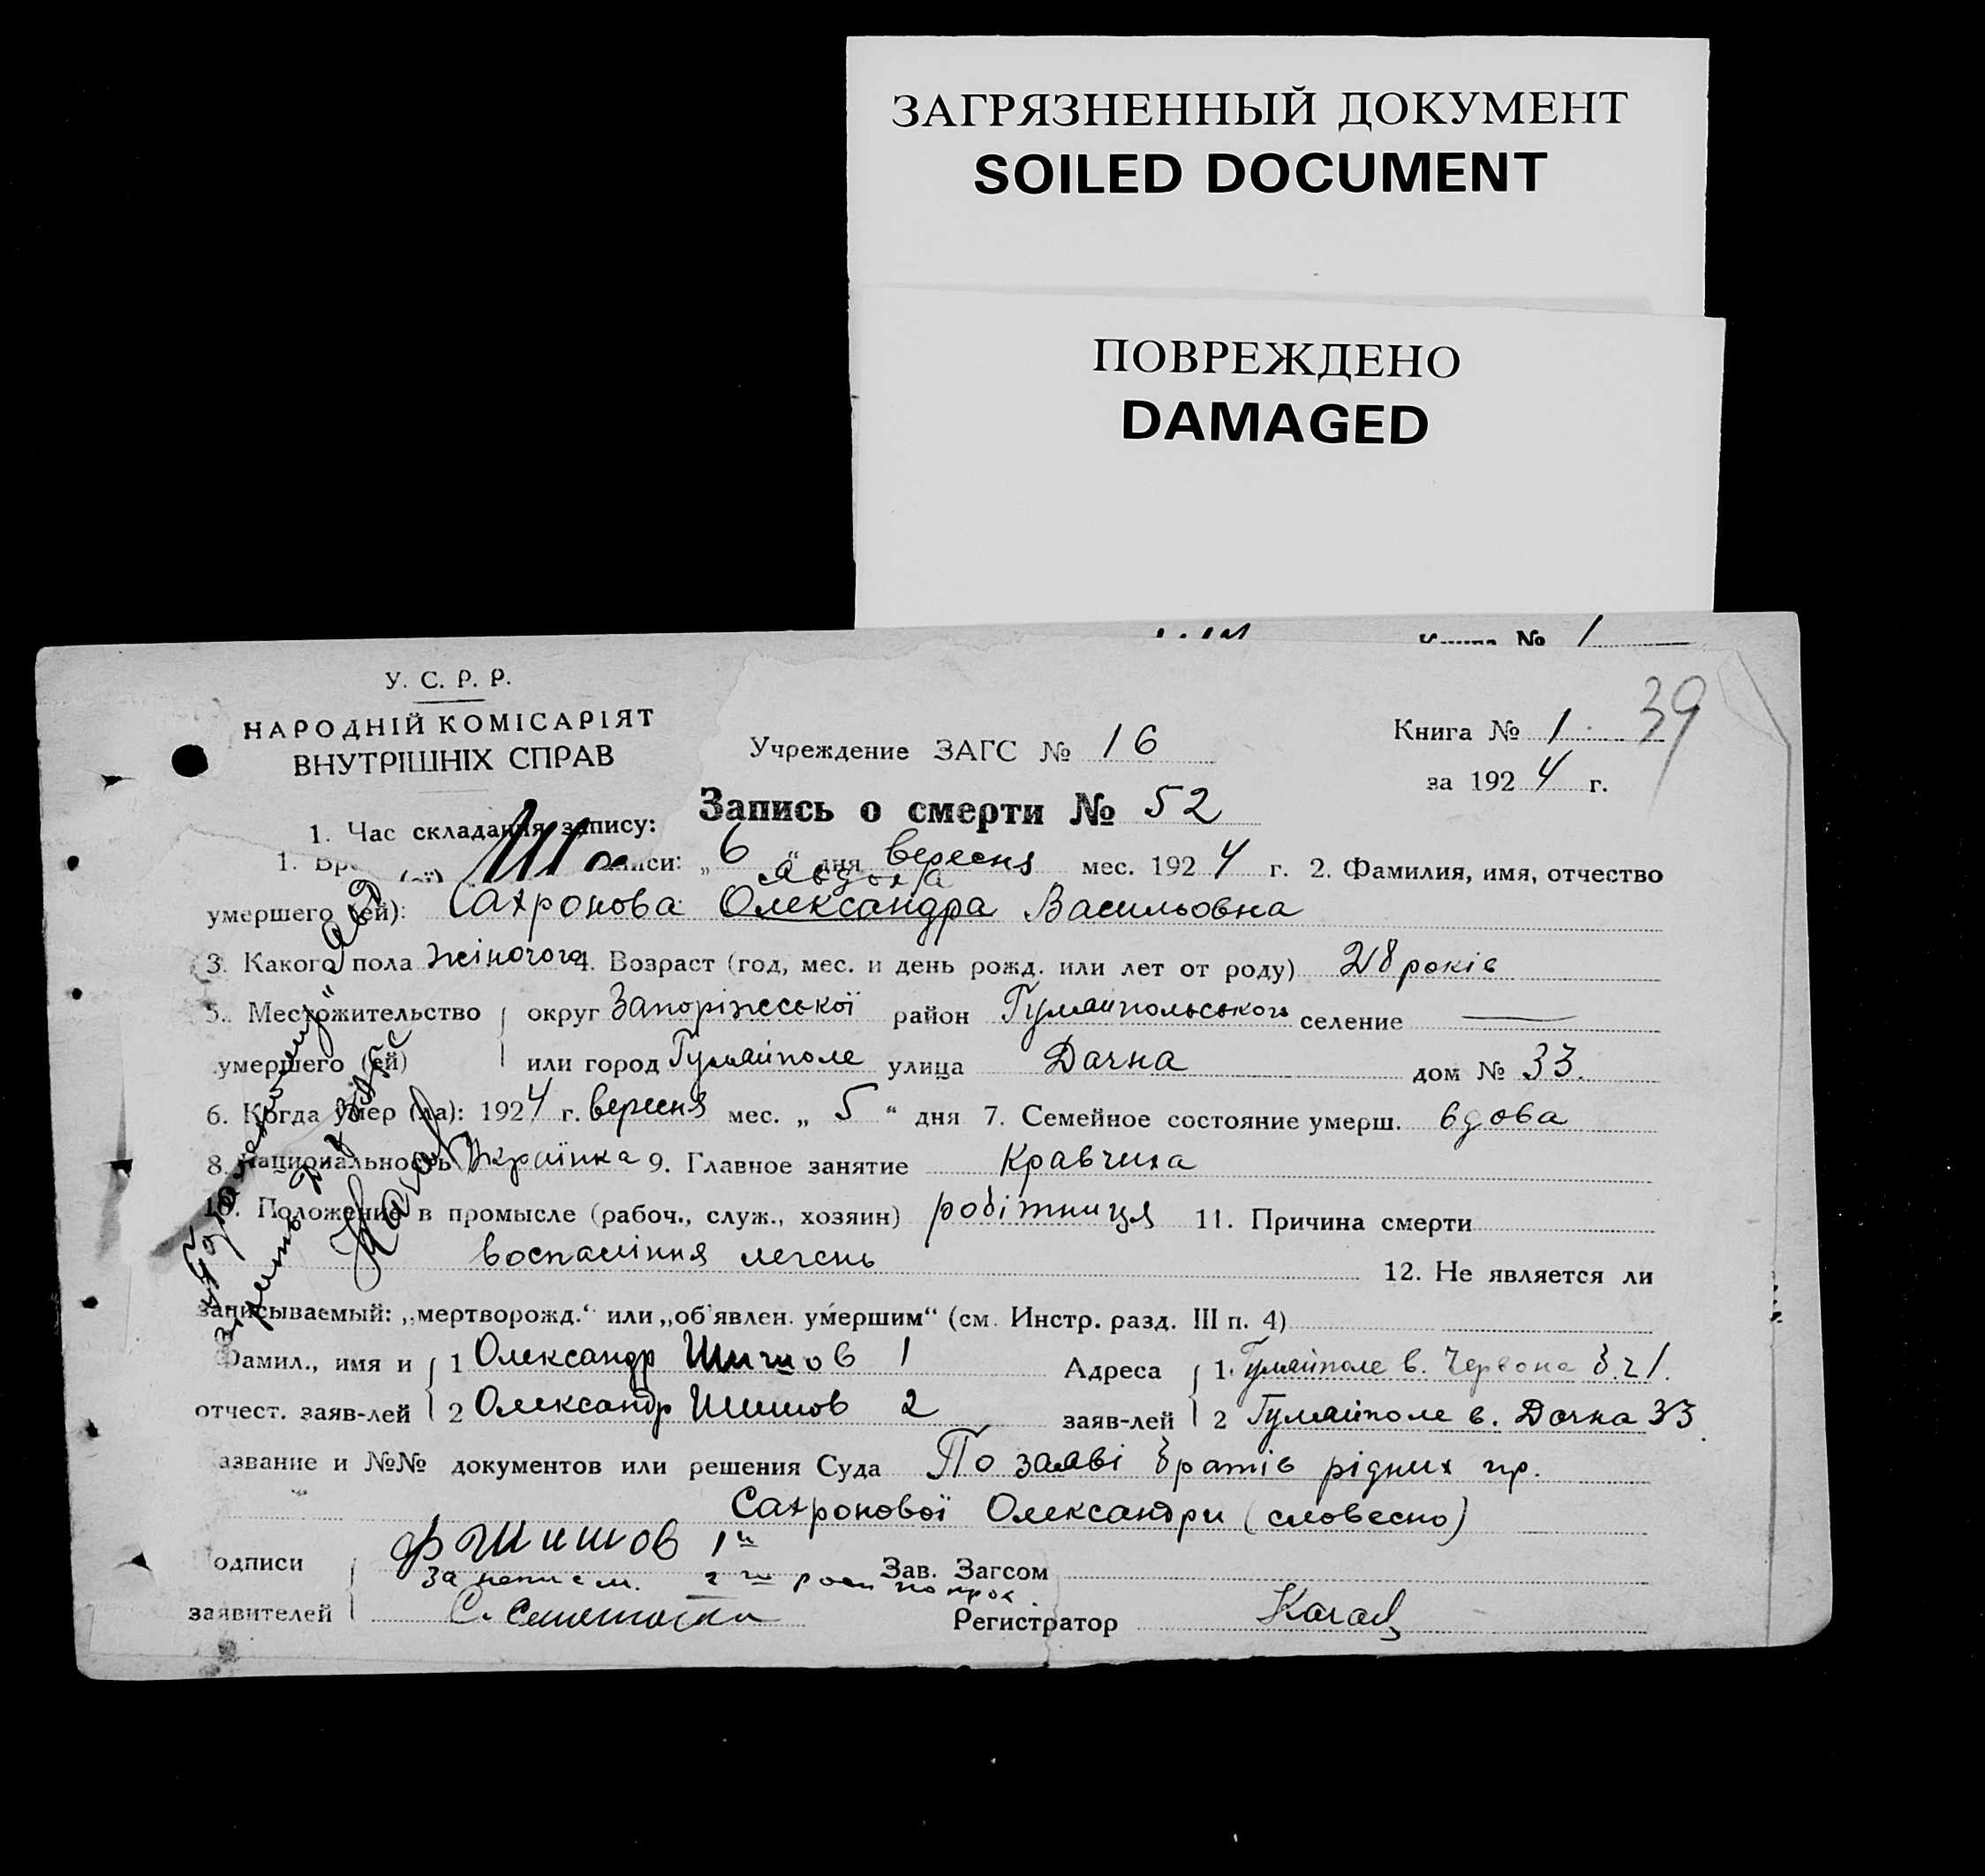 ЗАГРЯЗНЕННЫЙ ДОКУМЕНТ
SOILED DOCUMENT
ПОВРЕЖДЕНО
DAMAGED
№ 1
У. С. Р. Р.
НАРОДНІЙ КОМІСАРІЯТ
ВНУТРІШНІХ СПРАВ
Учреждение ЗАГС № 16
Книга № 1
39
за 1924 г.
Запись о смерти № 52
1. Час складання запису:
1. „6“ дня вересня мес. 1924 г. 2. Фамилия, имя, отчество
умершего (ей): Сахронова Олександра Васильовна
3. Какого пола жіночого 4. Возраст (год, мес. и день рожд. или лет от роду) 28 років
5. Местожительство округ Запоріжської район Гуляйпольського селение —
умершего (ей) или город Гуляйполе улица Дачна дом № 33.
6. Когда умер (ла): 1924 г. вересня мес. „5“ дня 7. Семейное состояние умерш. вдова
8. Национальность Українка 9. Главное занятие Кравчиха
10. Положение в промысле (рабоч., служ., хозяин) робітниця 11. Причина смерти
воспаління легень 12. Не является ли
записываемый: „мертворожд.“ или „об'явлен. умершим“ (см. Инстр. разд. III п. 4)
Фамил., имя и 1 Олександр Шишов 1 Адреса 1. Гуляйполе в. Червона б. 21.
отчест. заяв-лей 2 Олександр Шишов 2 заяв-лей 2 Гуляйполе в. Дачна 33
азвание и №№ документов или решения Суда По заяві братів рідних гр.
Сахронової Олександри (словесно)
одписи Шишов 1й Зав. Загсом
за
заявителей Регистратор